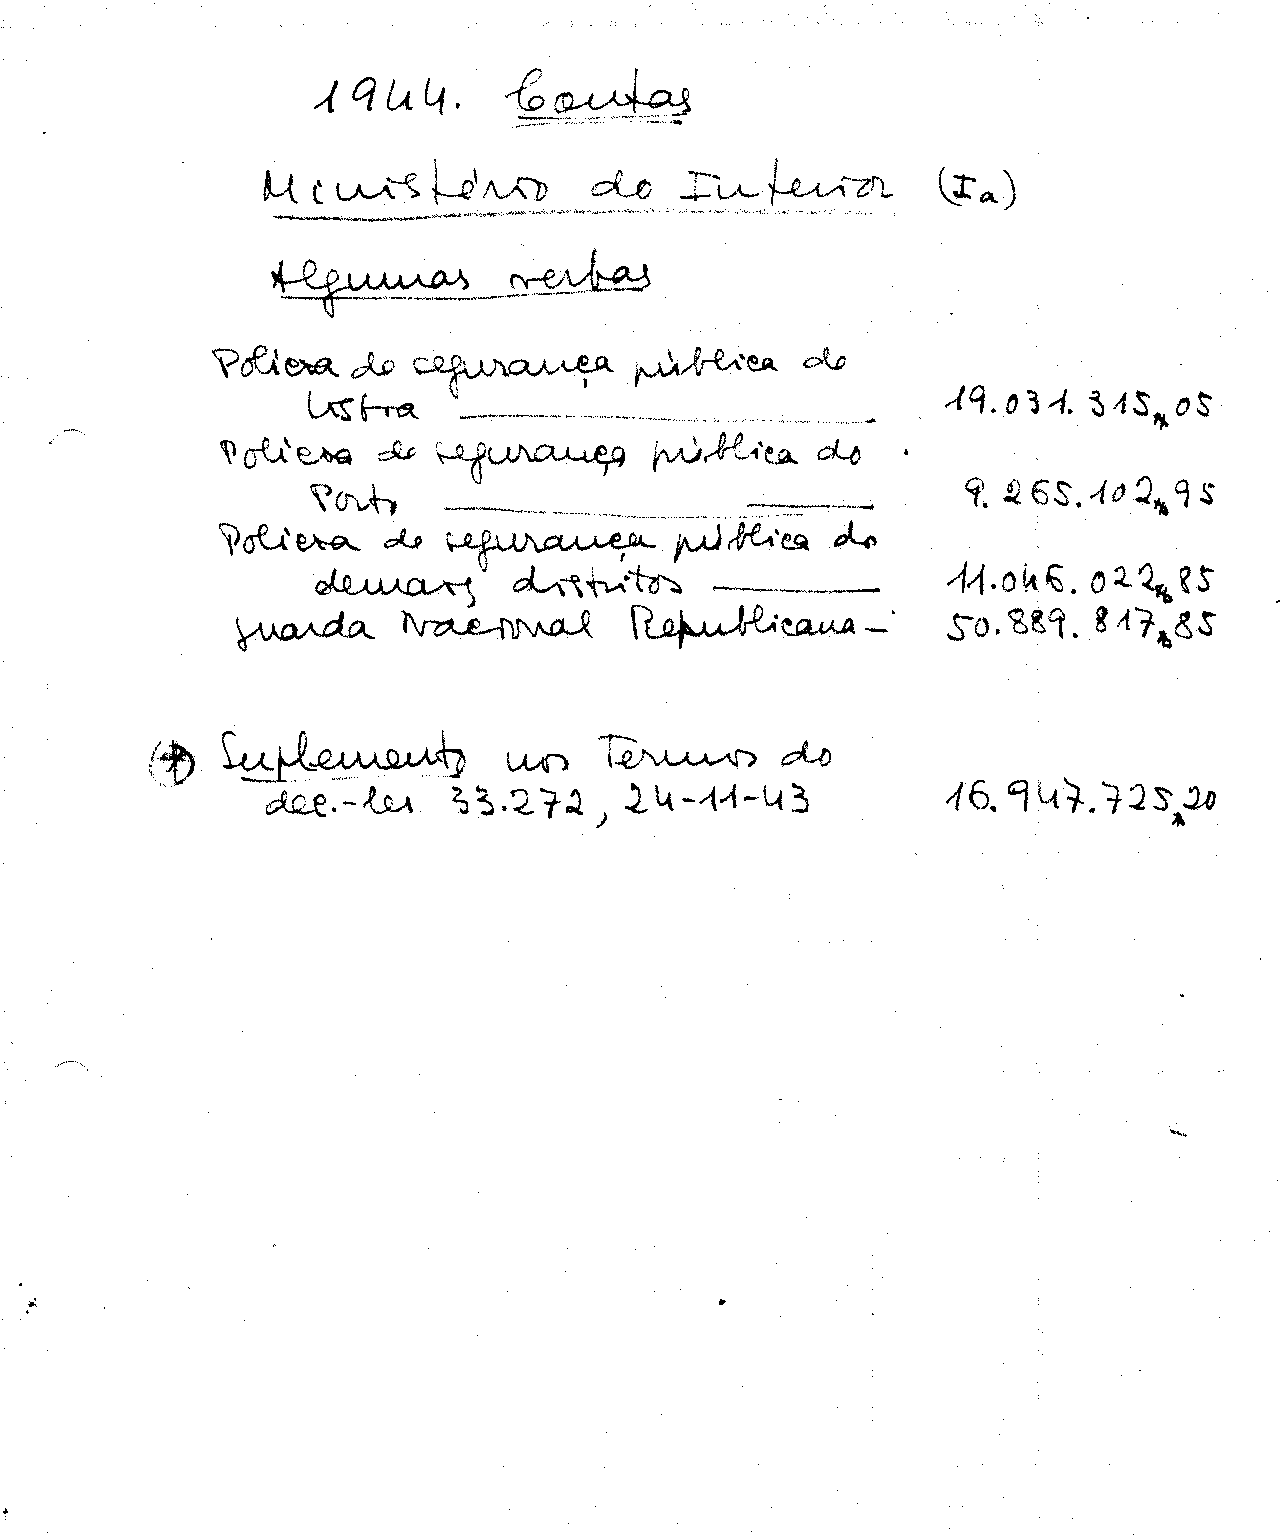 1944. Contas
Ministério do Interior (Ia)
Algumas verbas
Policia de segurança pública de
Lisboa 19.031.315$05
Policia de segurança pública do
Porto 9.265.102$95
Policia de segurança pública do
demais distritos 11.046.022$85
Guarda Nacional Republicana - 50.889.817$85
(+) Suplemento nos Termos do
dec.-lei 33.272, 24-11-43 16.947.725$20